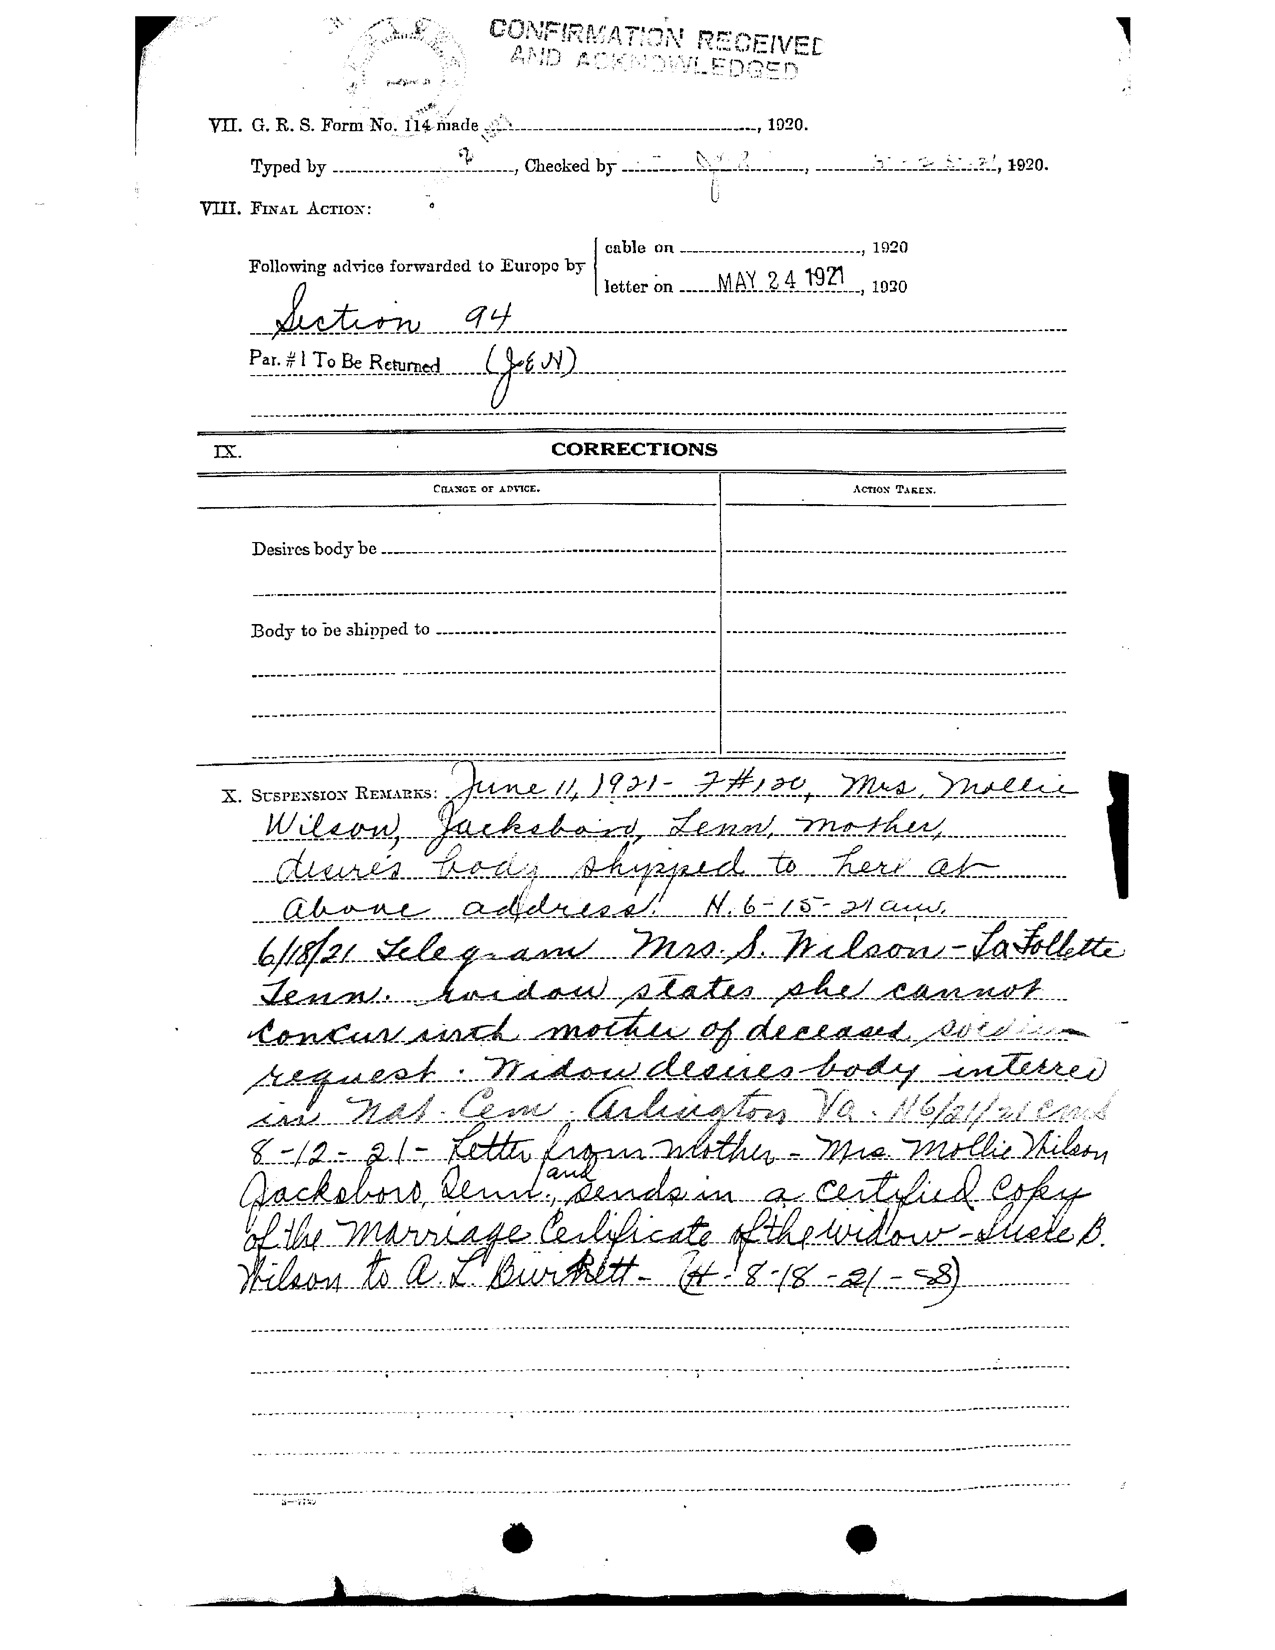 CONFIRMATION RECEIVED
AND ACKNOWLEDGED
VII. G. R. S. Form No. 114 made , 1920.
Typed by , Checked by , , 1920.
VIII. FINAL ACTION:
cable on , 1920
Following advice forwarded to Europe by
letter on MAY 24 1921, 1920
Section 94
Par. #1 To Be Returned (JEN)
IX. CORRECTIONS
CHANGE OF ADVICE. ACTION TAKEN.
Desires body be
Body to be shipped to
X. SUSPENSION REMARKS: June 11, 1921 - #120, Mrs. Mollie
Wilson, Jacksboro, Tenn, mother,
desires body shipped to her at
above address. N. 6-15-21
6/18/21 Telegram Mrs. S. Wilson - La Follette
Tenn. widow states she cannot
concur with mother of deceased soldier
request. Widow desires body interred
in Nat. Cem. Arlington Va. N6/21/21
8-12-21- Letter from Mother - Mrs. Mollie Wilson
Jacksboro, Tenn., and sends in a certified copy
of the Marriage Certificate of the widow - Susie B.
Wilson to A. L. Burkett - (H-8-18-21-